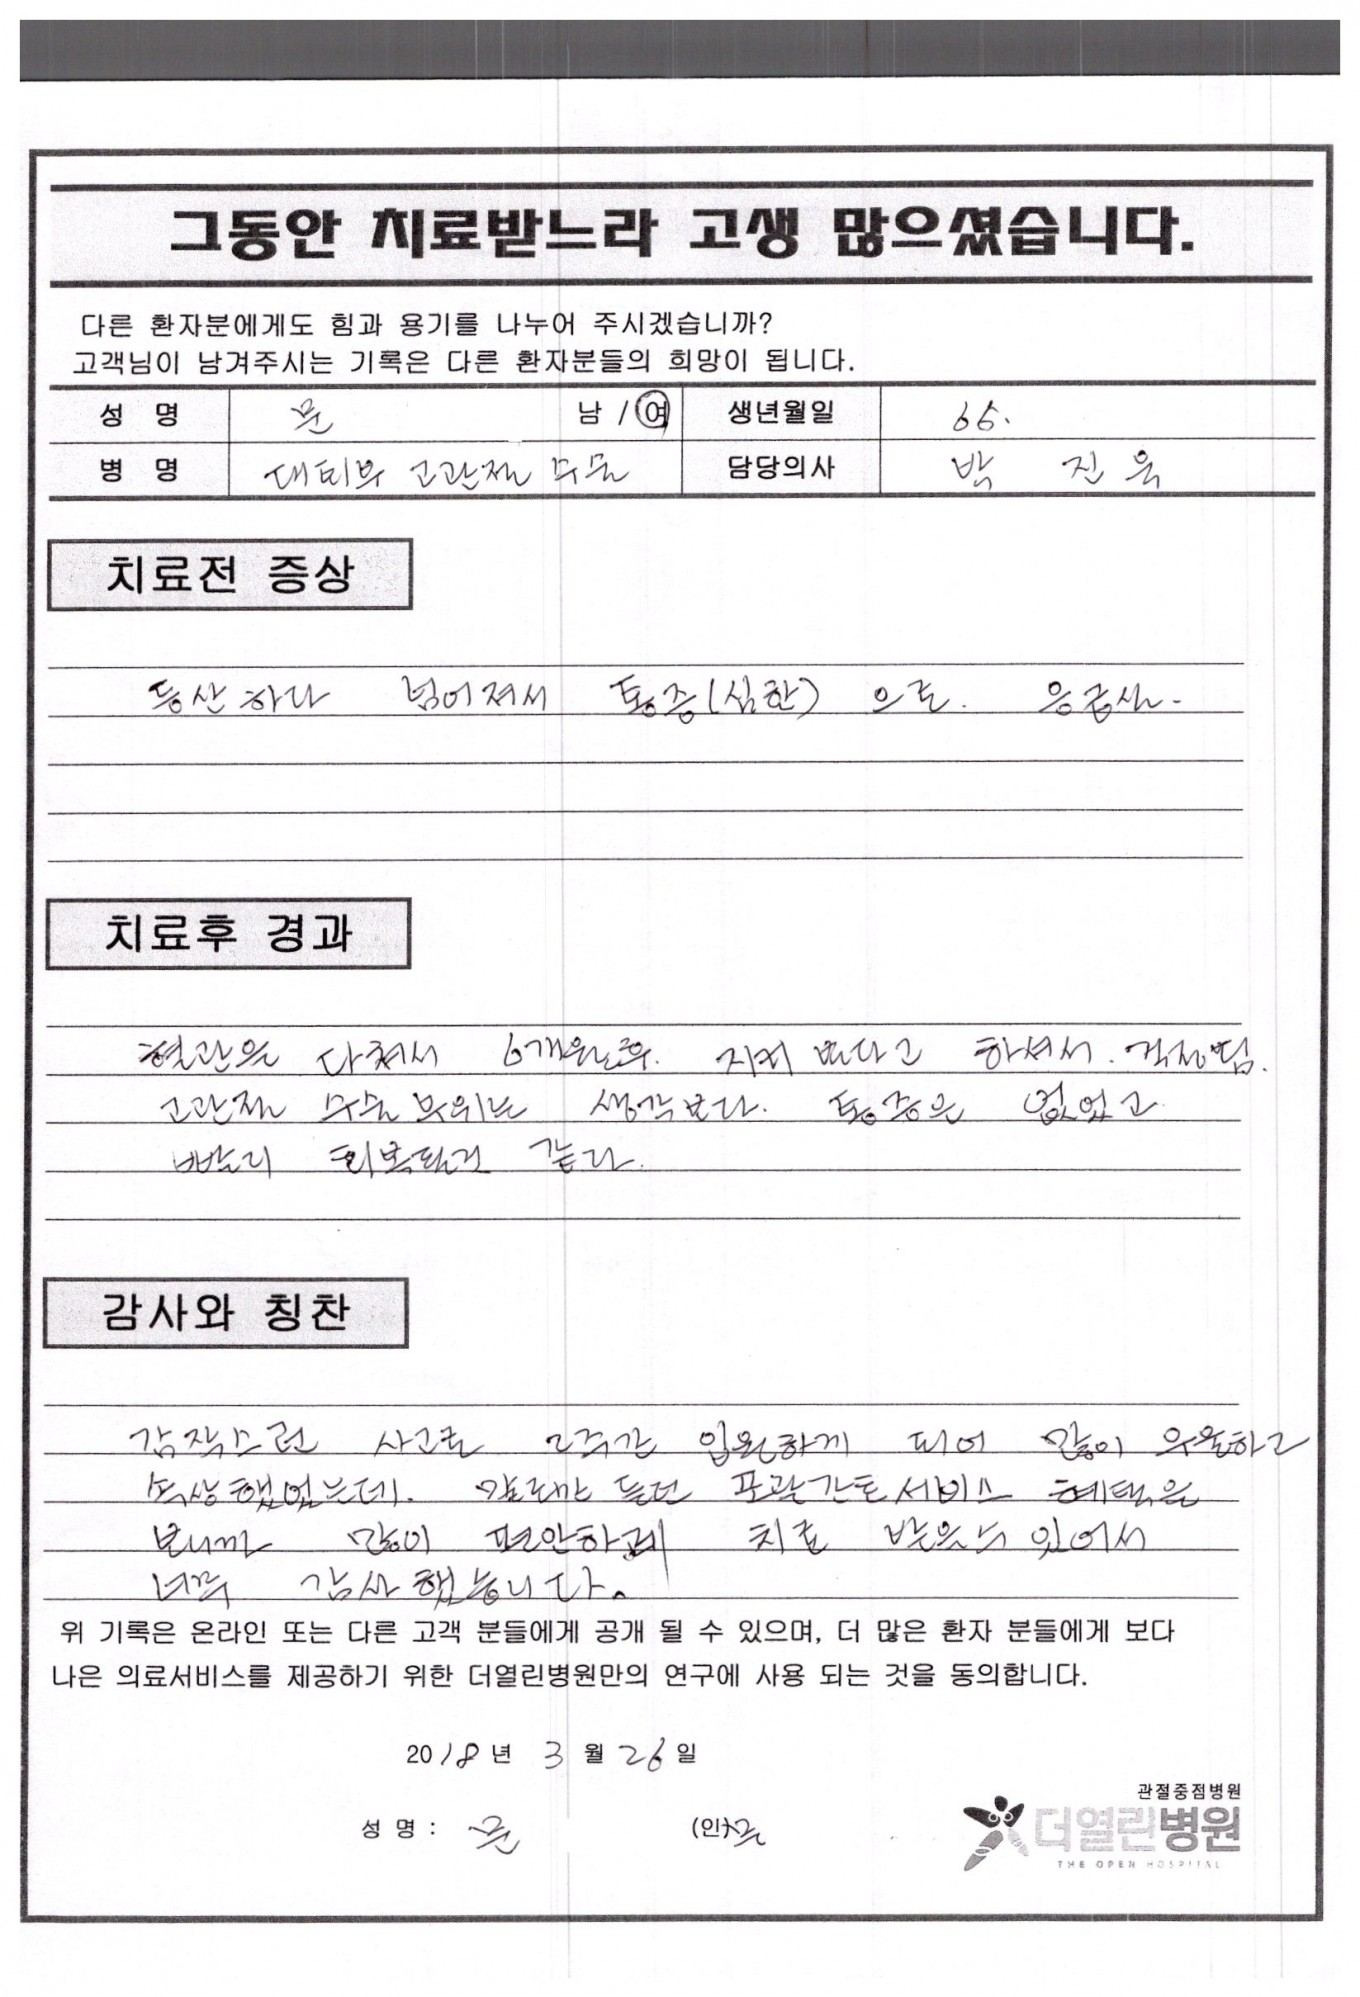 그동안 치료받느라 고생 많으셨습니다.
다른 환자분에게도 힘과 용기를 나누어 주시겠습니까?
고객님이 남겨주시는 기록은 다른 환자분들의 희망이 됩니다.
성 명 문 남 / 여 생년월일 65.
병 명 대퇴부 고관절 수술 담당의사 박 진 욱
치료전 증상
등산하다 넘어져서 통증(심한) 으로. 응급실.
치료후 경과
혈관을 다쳐서 6개월후. 지켜 본다고 하셔서. 걱정됨.
고관절 수술 부위는 생각보다. 통증은 없었고
빨리 회복된거 같다.
감사와 칭찬
갑작스런 사고로 2주간 입원하게 되어 많이 우울하고
속상했었는데. 말로만 듣던 포괄간호서비스 혜택을
보니까 많이 편안하게 치료 받을수 있어서
너무 감사했습니다.
위 기록은 온라인 또는 다른 고객 분들에게 공개 될 수 있으며, 더 많은 환자 분들에게 보다
나은 의료서비스를 제공하기 위한 더열린병원만의 연구에 사용 되는 것을 동의합니다.
2018년 3월 26일
성 명 : 문 (인) 문
관절중점병원
더열린병원
THE OPEN HOSPITAL